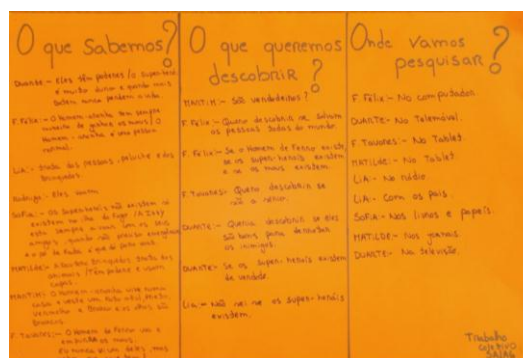 O que Sabemos?
Duarte:- Eles têm poderes / o super-herói
é muito duro e quando mais
batem nunca perdem a vida.
F. Félix:- O Homem-aranha tem sempre
de ganha os maus / O
Homem-aranha é uma pessoa
normal.
Lia:- trata das pessoas, peluche e dos
brinquedos.
Rodrigo:- Eles voam.
Sofia:- Os super-heróis não existem só
existem na
está sempre a voar com os seus
amigos, quando não
e o pé de
MATILDE:- A brinquedos trata dos
animais / Têm poderes e usam
capas.
MARTIM: O Homem-aranha vive numa
casa e veste um fato azul, preto,
vermelho e branco e os olhos são
brancos.
F. Tavares:- O Homem de Ferro voa e
os maus.
Eu nunca vi um deles, mas
O que queremos
descobrir?
MARTIM:- São verdadeiros?
F. Félix:- Quero descobrir se salvam
as pessoas todas do mundo.
F. Félix:- Se o Homem de Ferro existe,
se os super-heróis existem
e se os maus existem.
F. Tavares: Quero descobrir se
são a sério.
DUARTE:- Queria descobrir se eles
são bons para derrotar
os inimigos.
DUARTE:- Se os super-heróis existem
de verdade.
Lia:- Não sei se os super-heróis
existem.
Onde vamos
pesquisar?
F. Félix:- No computador.
DUARTE:- No Telemóvel.
F. Tavares:- No Tablet.
MATILDE:- No Tablet.
LiA:- No rádio.
LiA:- Com os pais.
SOFiA:- Nos livros e papéis.
MATiLDE:- Nos jornais.
DUARTE:- Na televisão.
Trabalho
coletivo